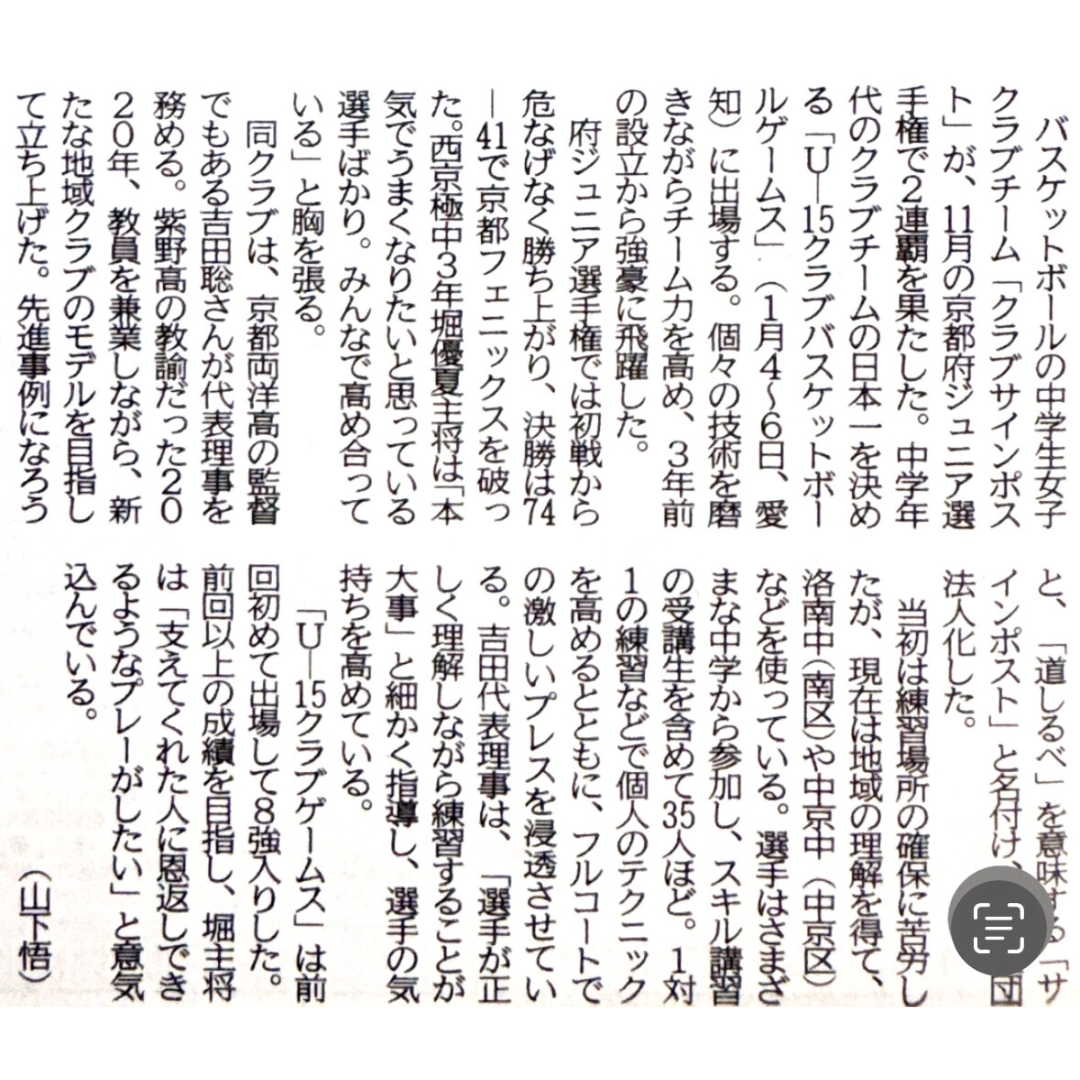 バスケットボールの中学生女子
クラブチーム「クラブサインポス
ト」が、11月の京都府ジュニア選
手権で2連覇を果たした。中学年
代のクラブチームの日本一を決め
る「U―15クラブバスケットボー
ルゲームス」（1月4〜6日、愛
知）に出場する。個々の技術を磨
きながらチーム力を高め、3年前
の設立から強豪に飛躍した。
府ジュニア選手権では初戦から
危なげなく勝ち上がり、決勝は74
―41で京都フェニックスを破っ
た。西京極中3年堀優夏主将は「本
気でうまくなりたいと思っている
選手ばかり。みんなで高め合って
いる」と胸を張る。
同クラブは、京都両洋高の監督
でもある吉田聡さんが代表理事を
務める。紫野高の教諭だった20
20年、教員を兼業しながら、新
たな地域クラブのモデルを目指し
て立ち上げた。先進事例になろう
と、「道しるべ」を意味する「サ
インポスト」と名付け、団
法人化した。
当初は練習場所の確保に苦労し
たが、現在は地域の理解を得て、
洛南中（南区）や中京中（中京区）
などを使っている。選手はさまざ
まな中学から参加し、スキル講習
の受講生を含めて35人ほど。1対
1の練習などで個人のテクニック
を高めるとともに、フルコートで
の激しいプレスを浸透させてい
る。吉田代表理事は、「選手が正
しく理解しながら練習することが
大事」と細かく指導し、選手の気
持ちを高めている。
「U―15クラブゲームス」は前
回初めて出場して8強入りした。
前回以上の成績を目指し、堀主将
は「支えてくれた人に恩返しでき
るようなプレーがしたい」と意気
込んでいる。
（山下悟）